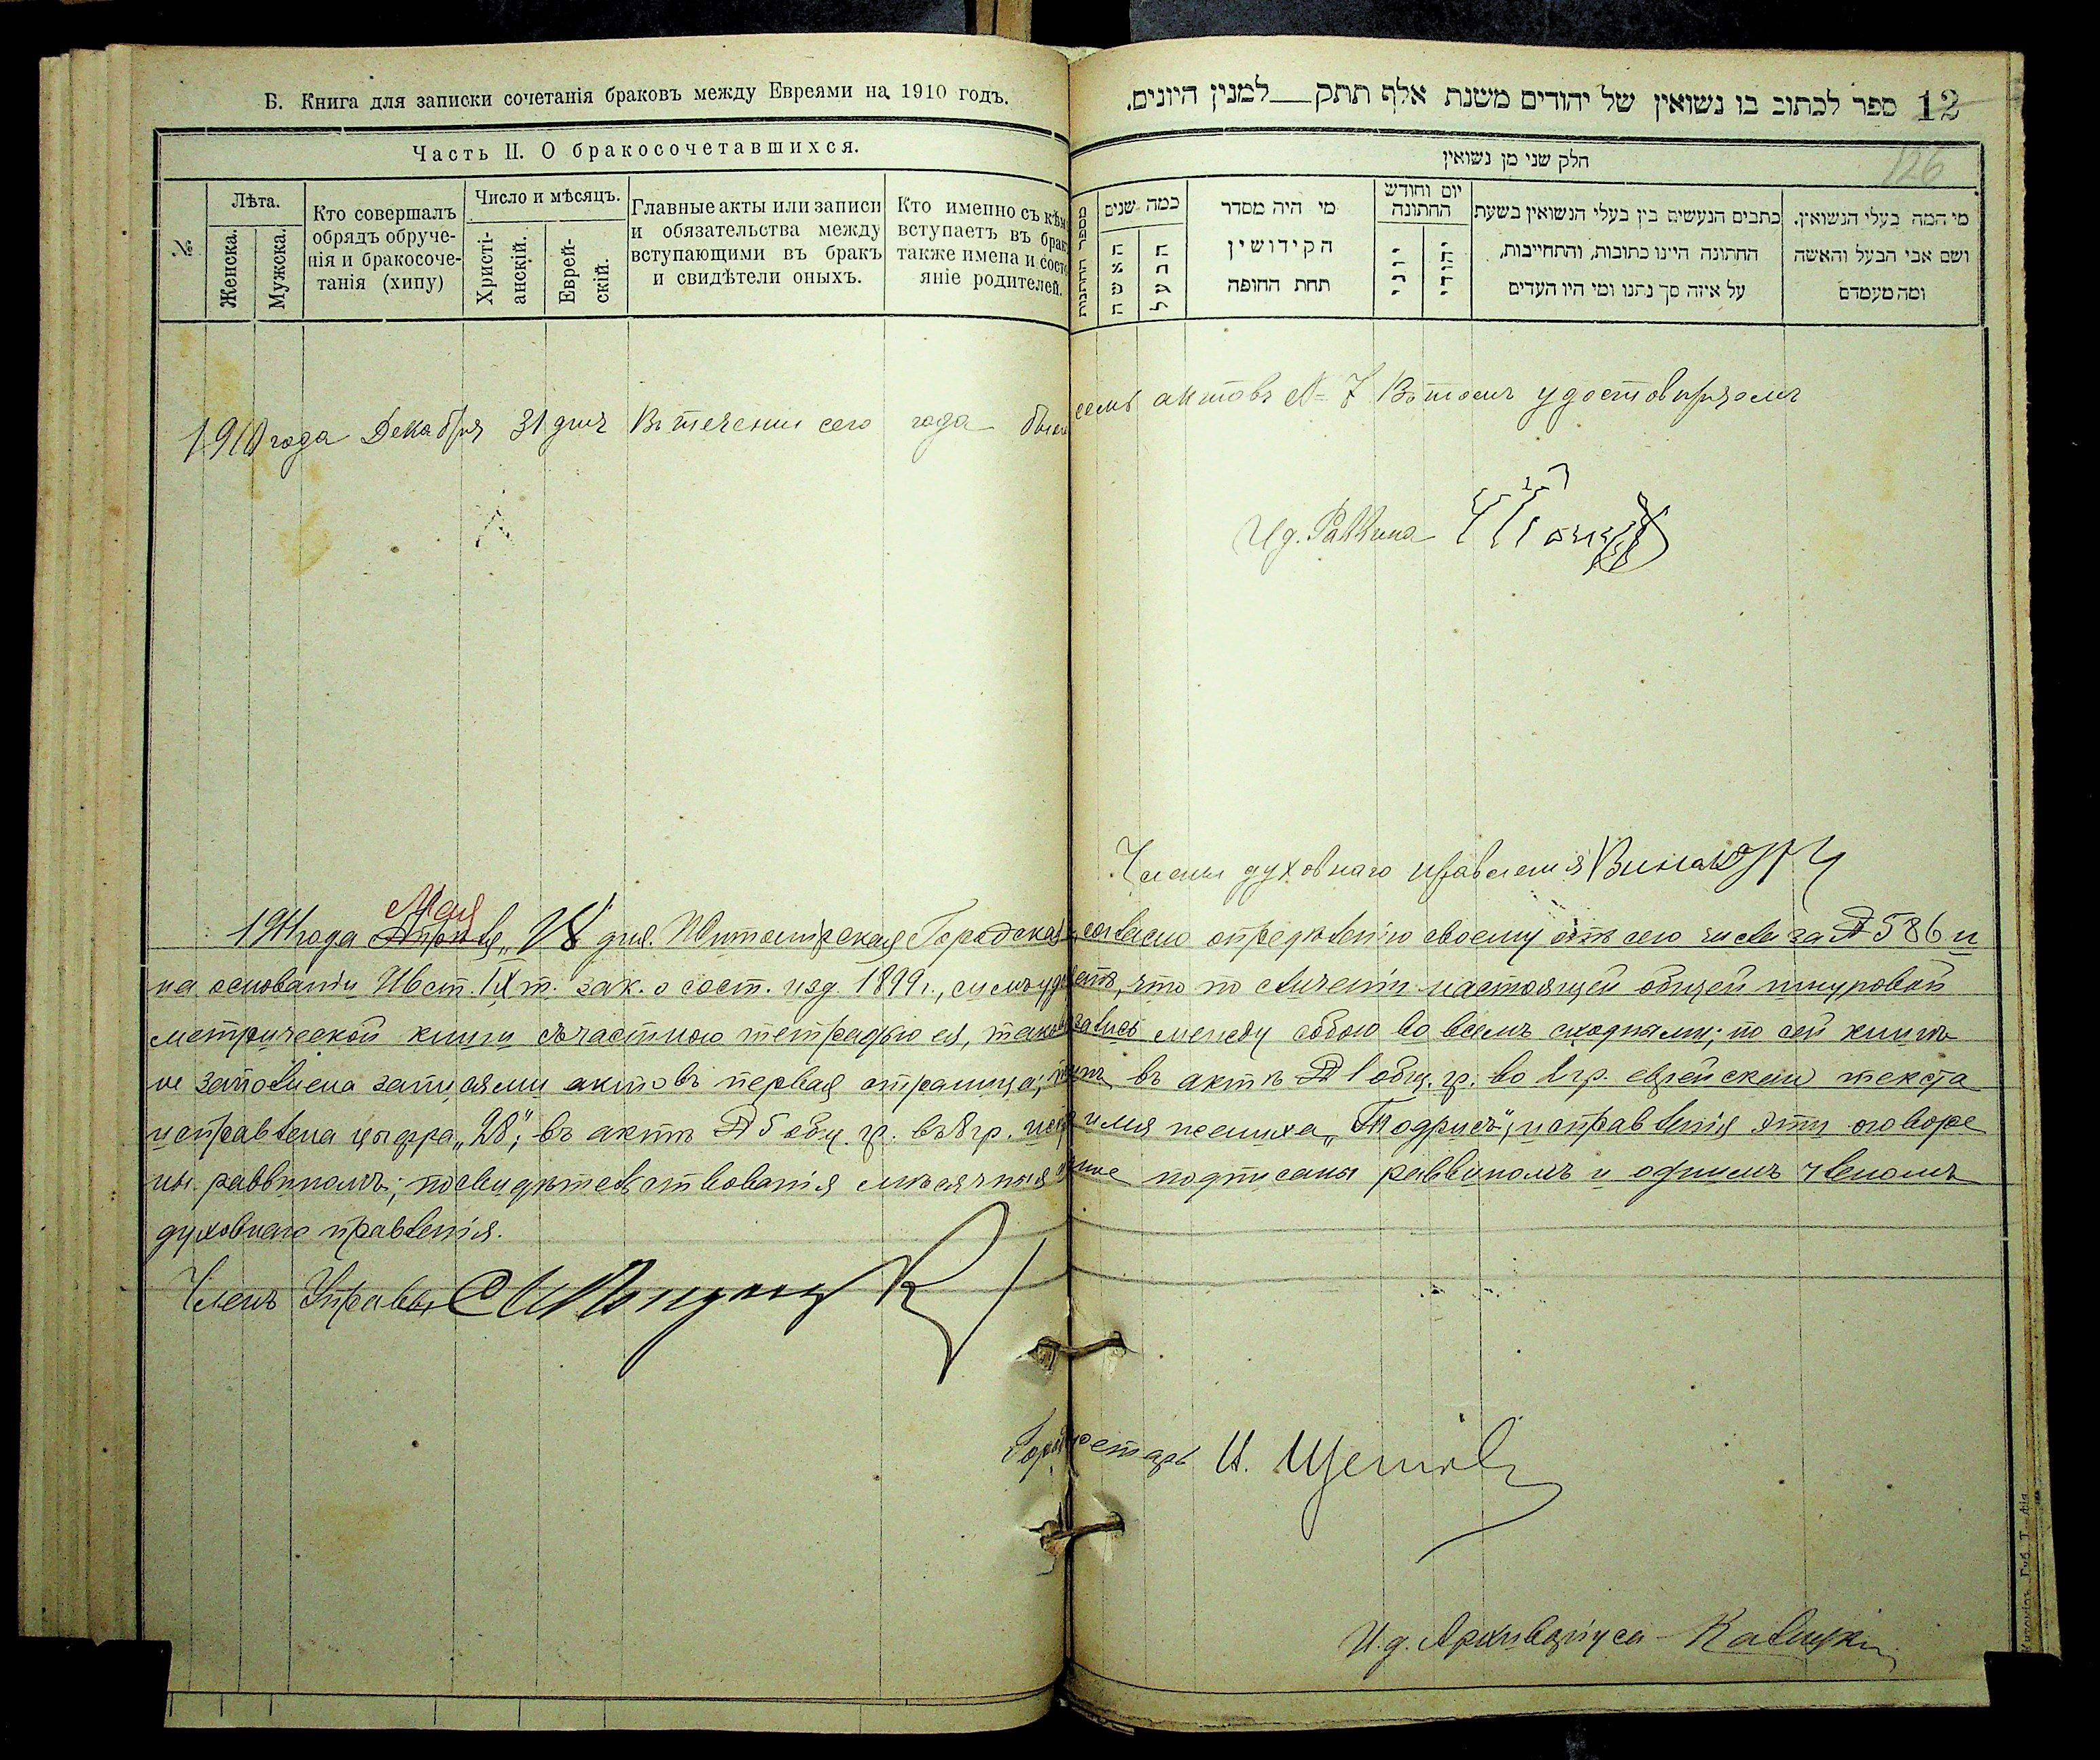 Б. Книга для записки сочетанія браковъ между Евреями на 1910 годъ.
Часть II. О бракосочетавшихся.
№
Лѣта.
Женска.
Мужска.
Кто совершалъ
обрядъ обруче-
нія и бракосоче-
танія (хипу)
Число и мѣсяцъ.
Христі-
анскій.
Еврей-
скій.
Главные акты или записи
и обязательства между
вступающими въ бракъ
и свидѣтели оныхъ.
Кто именно съ кѣмъ
вступаетъ въ бракъ
также имена и состо
яніе родителей.
ספר לכתוב בו נשואין של יהודים משנת אלף תתק__למנין היונים. 12
126
חלק שני מן נשואין
מספר החתונות
כמה שנים
האשה
הבעל
מי היה מסדר
הקידושין
תחת החופה
יום וחודש
החתונה
יוני
יהודי
כתבים הנעשים בין בעלי הנשואין בשעת
החתונה היינו כתובות, והתחייבות,
על איזה סך נתנו ומי היו העדים
מי המה בעלי הנשואין.
ושם אבי הבעל והאשה
ומה מעמדם
1910 года Декабря 31 дня Въ теченіи сего года было семь актовъ № 7 Въ томъ удостовѣряемъ
И д. Раввина
Члены духовнаго правленія
Мая
1911 года Апрѣля „28 дня. Житомирская Городская согласно опредѣленію своему отъ сего числа за № 586 и
на основаніи IX т. зак. о сост. изд. 1899 г., симъ что по сличеніи настоящей общей шнуровой
метрической книги съ частною тетрадью ея, между собою во всемъ сходными; по сей книгѣ
не заполнена записями актовъ первая страница; въ актѣ № 1 общ. гр. во 2 гр. еврейскаго текста
исправлена цыфра „28“; въ актѣ № 5 общ. гр. въ 8 гр. имя жениха „Тодрисъ“, исправленія эти оговоре
ны раввиномъ; посвидѣтельствованія мѣсячныя подписаны раввиномъ и однимъ членомъ
духовнаго правленія.
Членъ Управы
И.
И. д. Архиваріуса